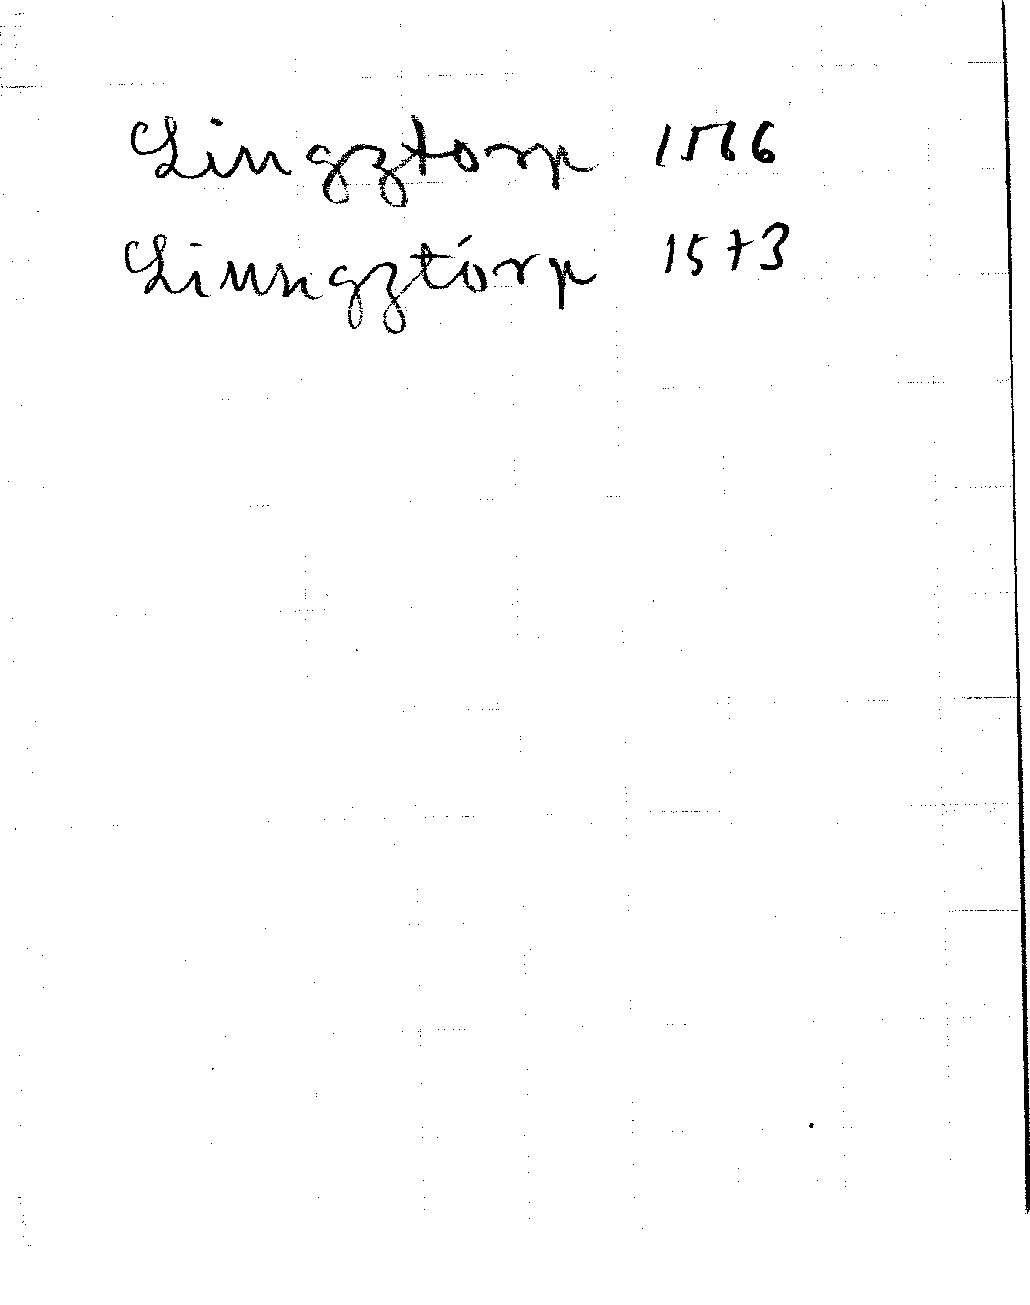 Lingztorp 1566
Linngztórp 1573